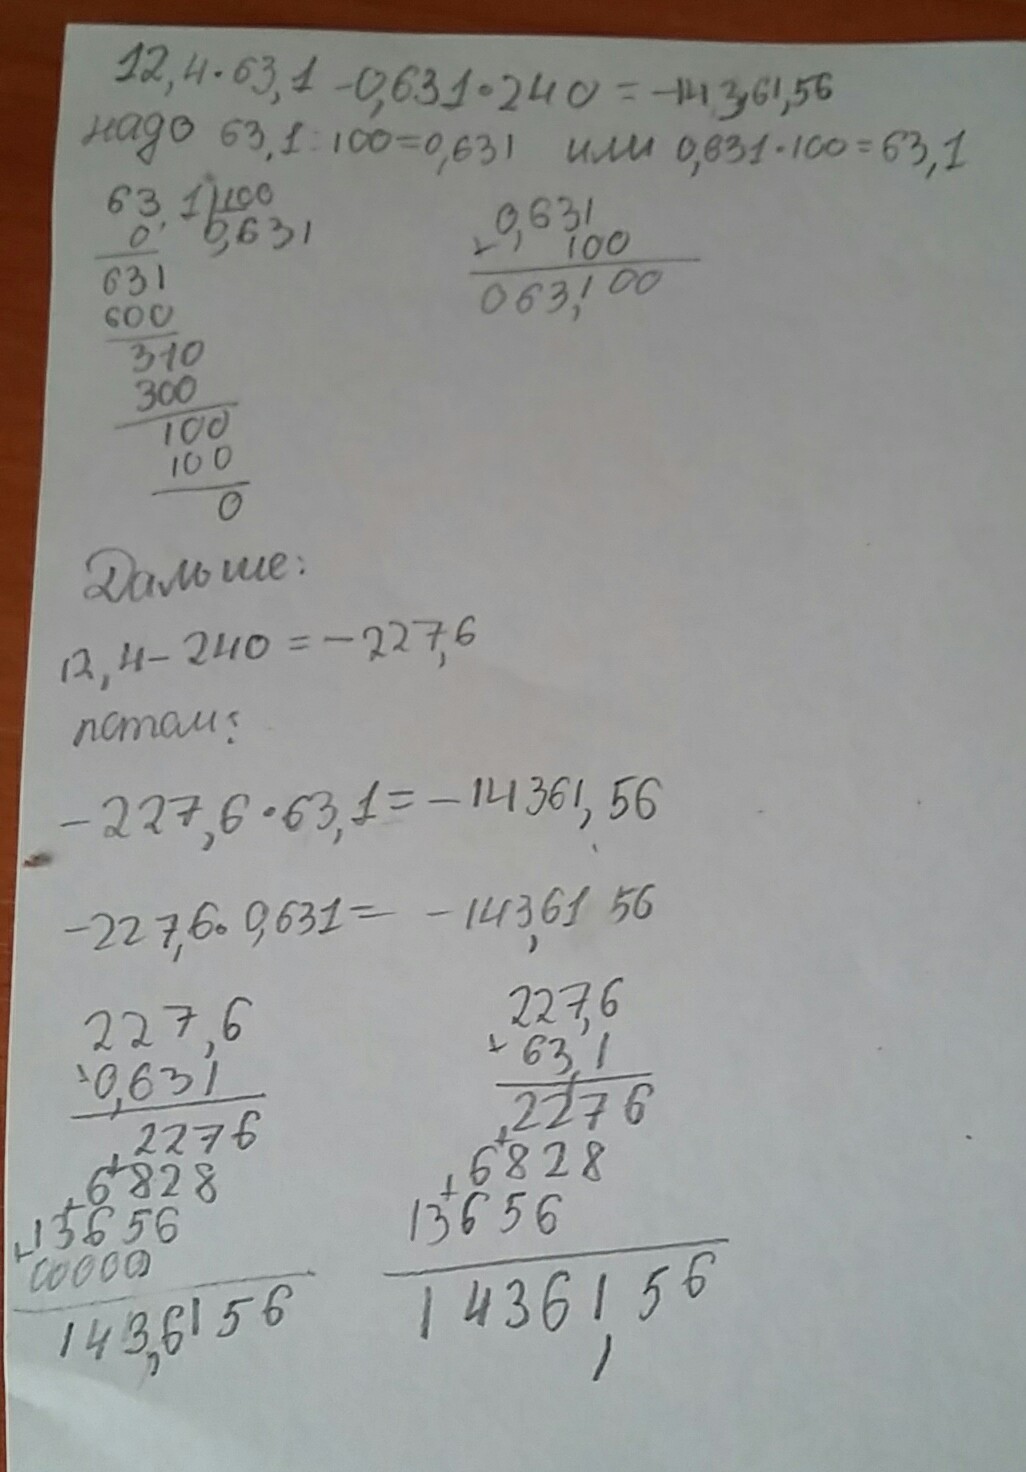 12,4·63,1 -0,631·240 = -14,361,56
надо 63,1:100=0,631 или 0,631·100=63,1
63,1 100
0 0,631
631
600
310
300
100
100
0
0,631
100
063,100
Дальше:
12,4-240=-227,6
потом:
-227,6·63,1=-14361,56
-227,6·0,631= -143,61 56
227,6
0,631
2276
6828
13656
00000
143,6156
227,6
63,1
2276
6828
13656
14361,56